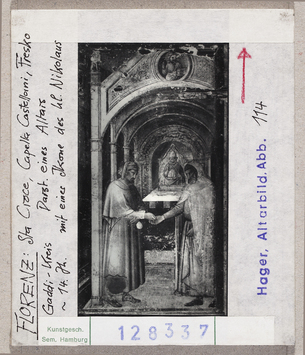 FLORENZ: Sta Croce, Capella Castellani, Fresko
Gaddi-Kreis Darst. eines Altars
~ 14. Jh. mit einer Ikone des hl. Nikolaus
Hager, Altarbild, Abb. 114
Kunstgesch.
Sem. Hamburg
128337